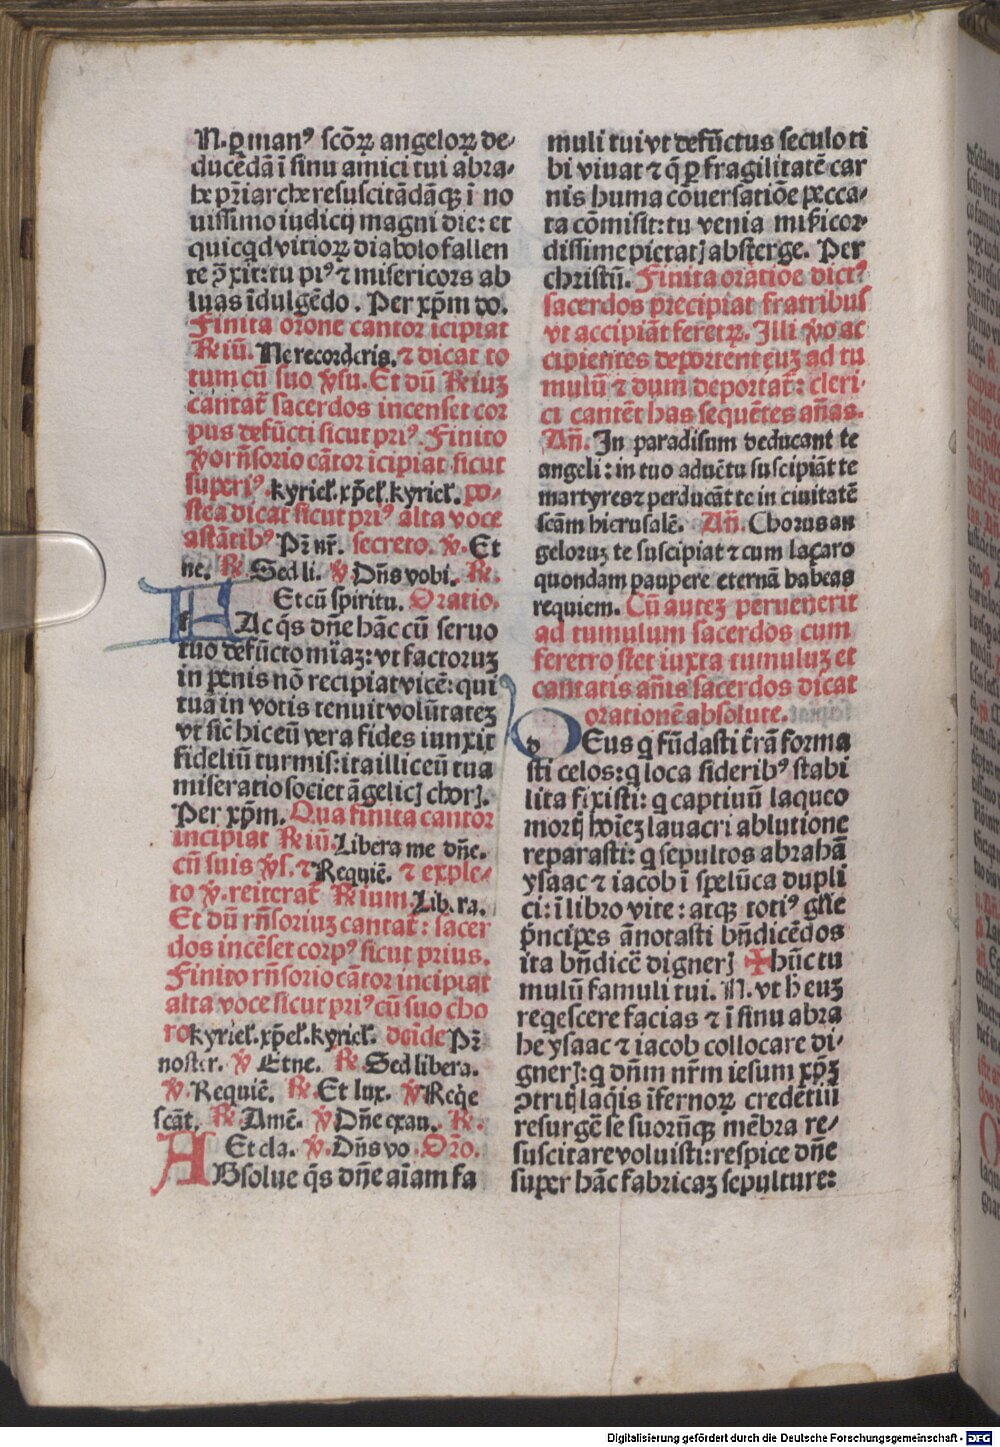 N. ꝑ manꝰ scōꝝ angeloꝝ de⸗
ducēdā ī sinu amici tui abra⸗
he pr̄iarche resuscitādāqꝫ ī no
uissimo iudicij magni die: et
quicqd vitioꝝ diabolo fallen
te ꝯ̄xit: tu piꝰ ⁊ misericors ab
luas īdulgēdo. Per xp̄m do.
Finita orōne cantor īcipiat
℞iū. Ne recorderis. ⁊ dicat to
tum cū suo ꝟsu. Et dū ℞iuꝫ
cantat̄ sacerdos incenset cor
pus defūcti sicut priꝰ. Finito
ꝟo rn̄sorio cātor īcipiat sicut
superiꝰ. kyriel̄. xp̄el̄. kyriel̄. po⸗
stea dicat sicut priꝰ alta voce
astātibꝰ Pr̄ nr̄. secreto. ꝟ. Et
ne. ℞. Sed li. ꝟ Dn̄s vobi. ℞.
Et cū spiritu. Oratio.
HAc q̄s dn̄e hāc cū seruo
tuo defūcto mīaꝫ: vt factoruꝫ
in penis nō recipiat vicē: qui
tuā in votis tenuit volūtateꝫ
vt sic̄ hic eū vera fides iunxit
fideliū turmis: ita illic eū tua
miseratio societ āgelicꝭ chorꝭ.
Per xp̄m. Qua finita cantor
incipiat ℞iū. Libera me dn̄e.
cū suis ꝟs. ⁊ Requiē. ⁊ exple⸗
to ꝟ. reiterat̄ ℞ium. Lib. ra.
Et dū rn̄soriuꝫ cantat̄: sacer
dos incēset corpꝰ sicut prius.
Finito rn̄sorio cātor incipiat
alta voce sicut priꝰ cū suo cho
ro kyriel̄. xp̄el̄. kyriel̄. deīde Pr̄
noster. ꝟ Et ne. ℞. Sed libera.
ꝟ. Requiē. ℞. Et lux. ꝟ Reqͥe
scāt. ℞. Amē. ꝟ Dn̄e exau. ℞.
Et cla. ꝟ. Dn̄s vo. Or̄o.
ABsolue q̄s dn̄e aīam fa
muli tui vt defūctus seculo ti
bi viuat ⁊ q̄ ꝑ fragilitatē car
nis huma cōuersatiōe pecca⸗
ta cōmisit: tu venia mīsicor⸗
dissime pietatꝭ absterge. Per
christū. Finita oratiōe dictꝰ
sacerdos precipiat fratribus
vt accipiāt feretꝝ. Illi ꝟo ac
cipientes deportent euꝫ ad tu
mulū ⁊ dum deportat̄: cleri⸗
ci cantēt has sequētes an̄as.
An̄. In paradisum deducant te
angeli: in tuo aduētu suscipiāt te
martyres ⁊ perducāt te in ciuitatē
scām hierusalē. An̄. Chorus an
geloruꝫ te suscipiat ⁊ cum laçaro
quondam paupere eternā habeas
requiem. Cū auteꝫ peruenerit
ad tumulum sacerdos cum
feretro stet iuxta tumuluꝫ et
cantatis an̄is sacerdos dicat
orationē absolute.
DEus q fūdasti t̄rā forma
sti celos: q loca sideribꝰ stabi
lita fixisti: q captiuū laqueo
mortꝭ hoīeꝫ lauacri ablutione
reparasti: q sepultos abrahā
ysaac ⁊ iacob ī spelūca dupli
ci: ī libro vite: atqꝫ totiꝰ gl̄ie
p̄ncipes ānotasti bn̄dicēdos
ita bn̄dicē dignerꝭ ✠ hūc tu
mulū famuli tui. N. vt h̄ euꝫ
reqescere facias ⁊ ī sinu abra
he ysaac ⁊ iacob collocare di⸗
gnerꝭ: q dn̄m nr̄m iesum xp̄ꝫ
ꝯtritꝭ laqͥs īfernoꝝ credētiū
resurgē se suorūqꝫ mēbra re⸗
suscitare voluisti: respice dn̄e
super hāc fabricaꝫ sepulture:
Digitalisierung gefördert durch die Deutsche Forschungsgemeinschaft - DFG